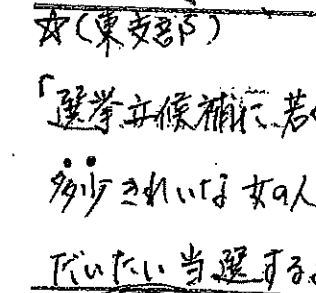 ☆(東支部)
「選挙立候補に、若く
多少きれいな女の人
だいたい当選する。